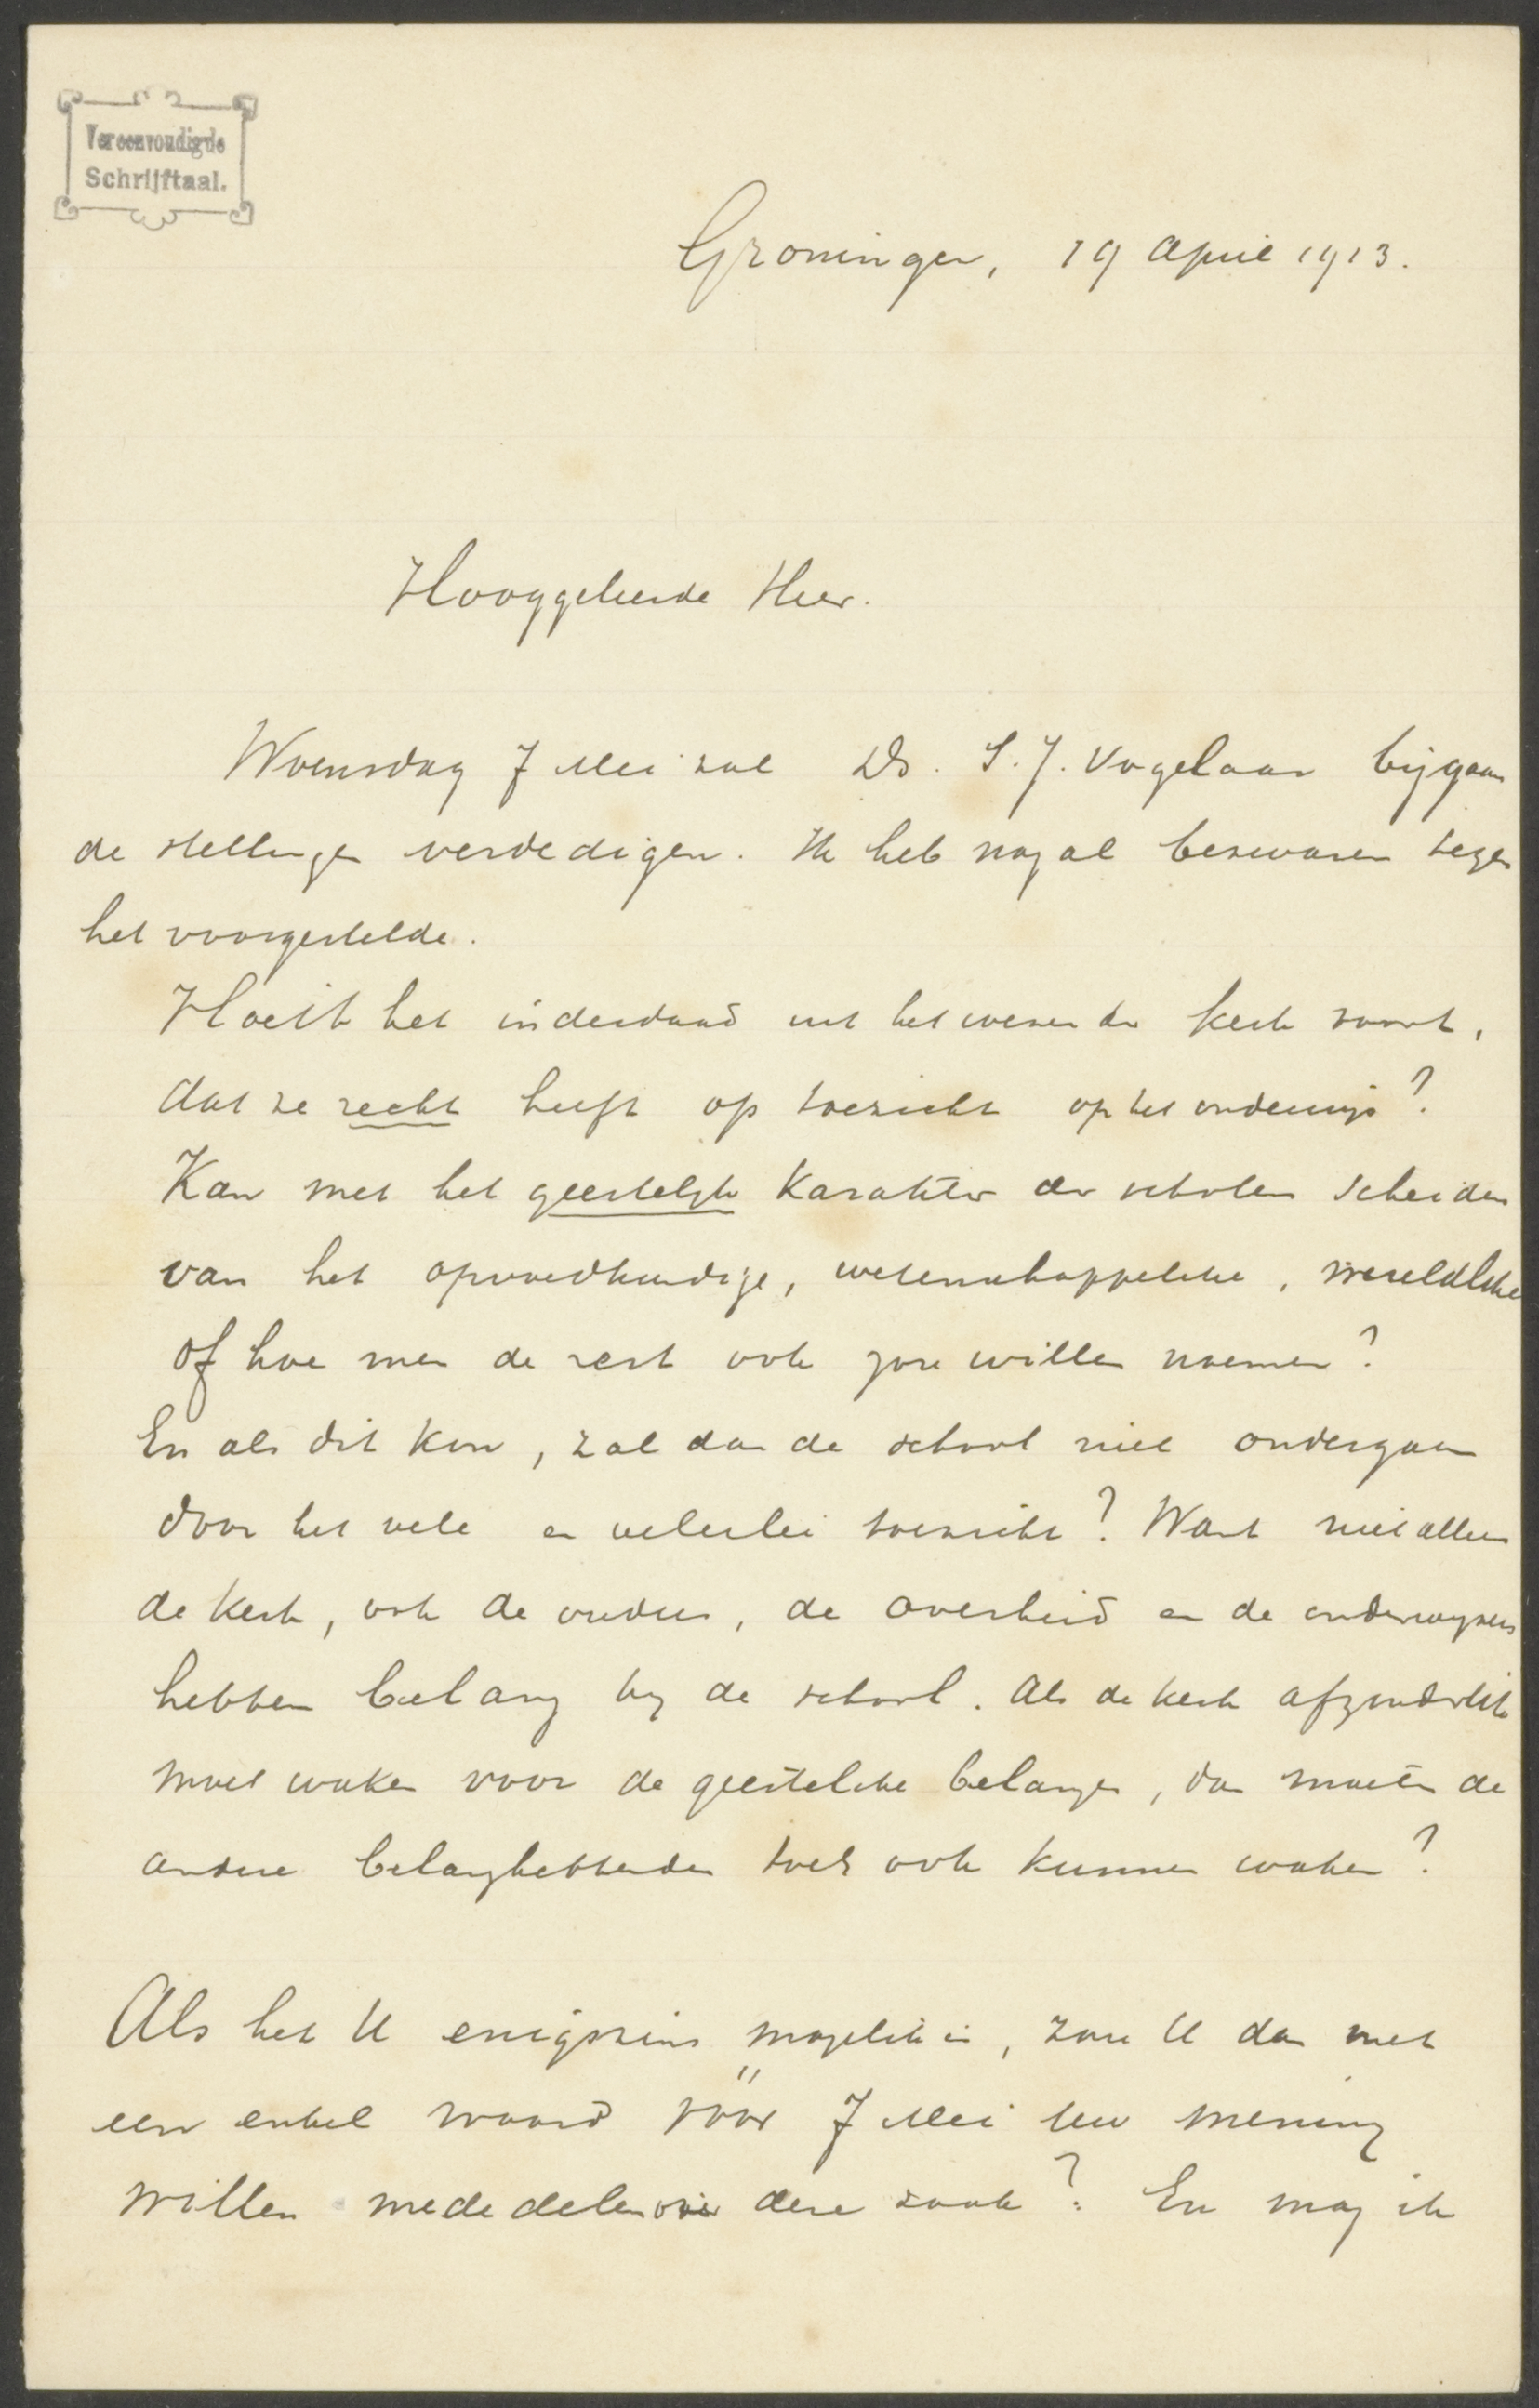 Vereenvoudigde
Schrijftaal.
Groningen, 19 April 1913.
Hooggeleerde Heer.
Woensdag 7 Mei zal Ds. S. J. Vogelaar bijgaan
de stellingen verdedigen. Ik heb nog al bezwaren tegen
het voorgestelde.
het inderdaad uit het wezen der kerk voort,
dat ze recht heeft op toezicht op het onderwijs?
Kan men het geestelijk karakter der scholen scheiden
van het opvoedkundige, wetenschappelike, wereldlike
of hoe men de rest ook zou willen noemen?
En als dit kon, zal dan de school niet ondergaan
door het vele en velerlei toezicht? Want niet alleen
de kerk, ook de ouders, de overheid en de onderwijzers
hebben belang bij de school. Als de kerk afzonderlik
moet waken voor de geestelike belangen, dan moeten de
andere belanghebbenden toch ook kunnen waken?
Als het U enigszins mogelik is, zou U dan met
een enkel woord vóór 7 Mei uw mening
willen mededelen over deze zaak? En mag ik